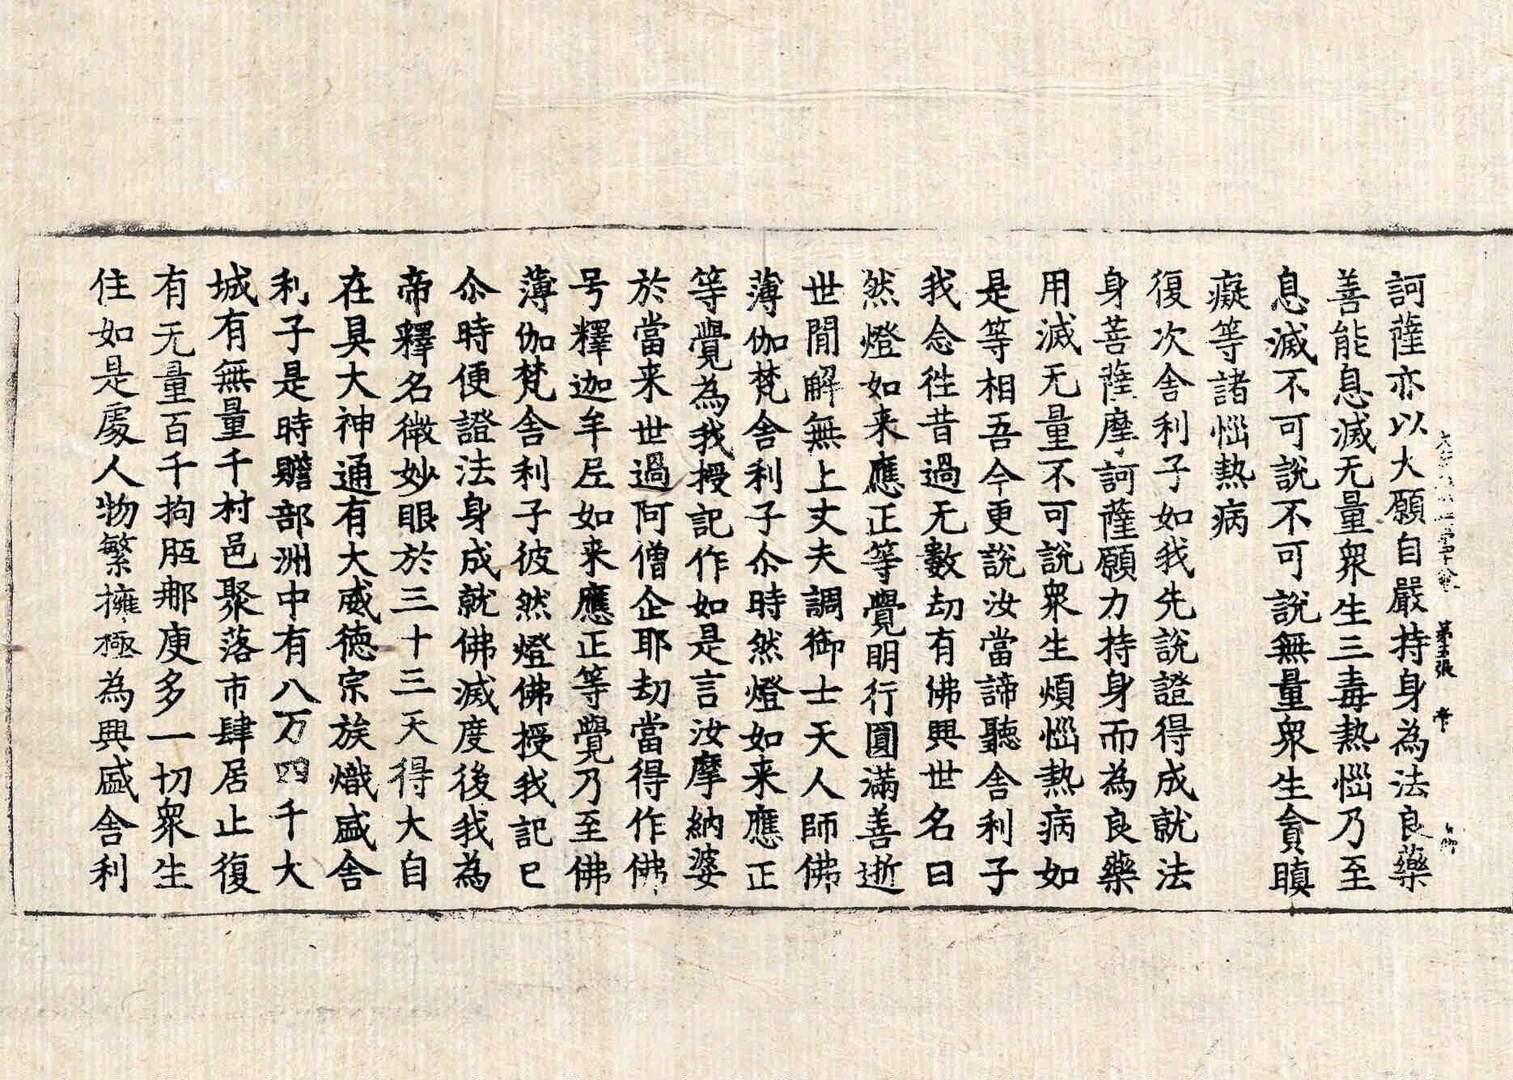 訶薩亦以大願自嚴持身為法良藥
善能息滅无量衆生三毒熱惱乃至
息滅不可說不可說無量衆生貪瞋
癡等諸惱熱病
復次舍利子如我先說證得成就法
身菩薩摩訶薩願力持身而為良藥
用滅无量不可說衆生煩惱熱病如
是等相吾今更說汝當諦聽舍利子
我念徃昔過无數劫有佛興世名曰
然燈如来應正等覺明行圓滿善逝
世間解無上丈夫調御士天人師佛
薄伽梵舍利子尒時然燈如来應正
等覺為我授記作如是言汝摩納婆
於當来世過阿僧企耶劫當得作佛
号釋迦牟尼如来應正等覺乃至佛
薄伽梵舍利子彼然燈佛授我記已
尒時便證法身成就佛滅度後我為
帝釋名微妙眼於三十三天得大自
在具大神通有大威德宗族熾盛舍
利子是時贍部洲中有八万四千大
城有無量千村邑聚落市肆居止復
有无量百千拘胝那庾多一切衆生
住如是處人物繁擁極為興盛舍利